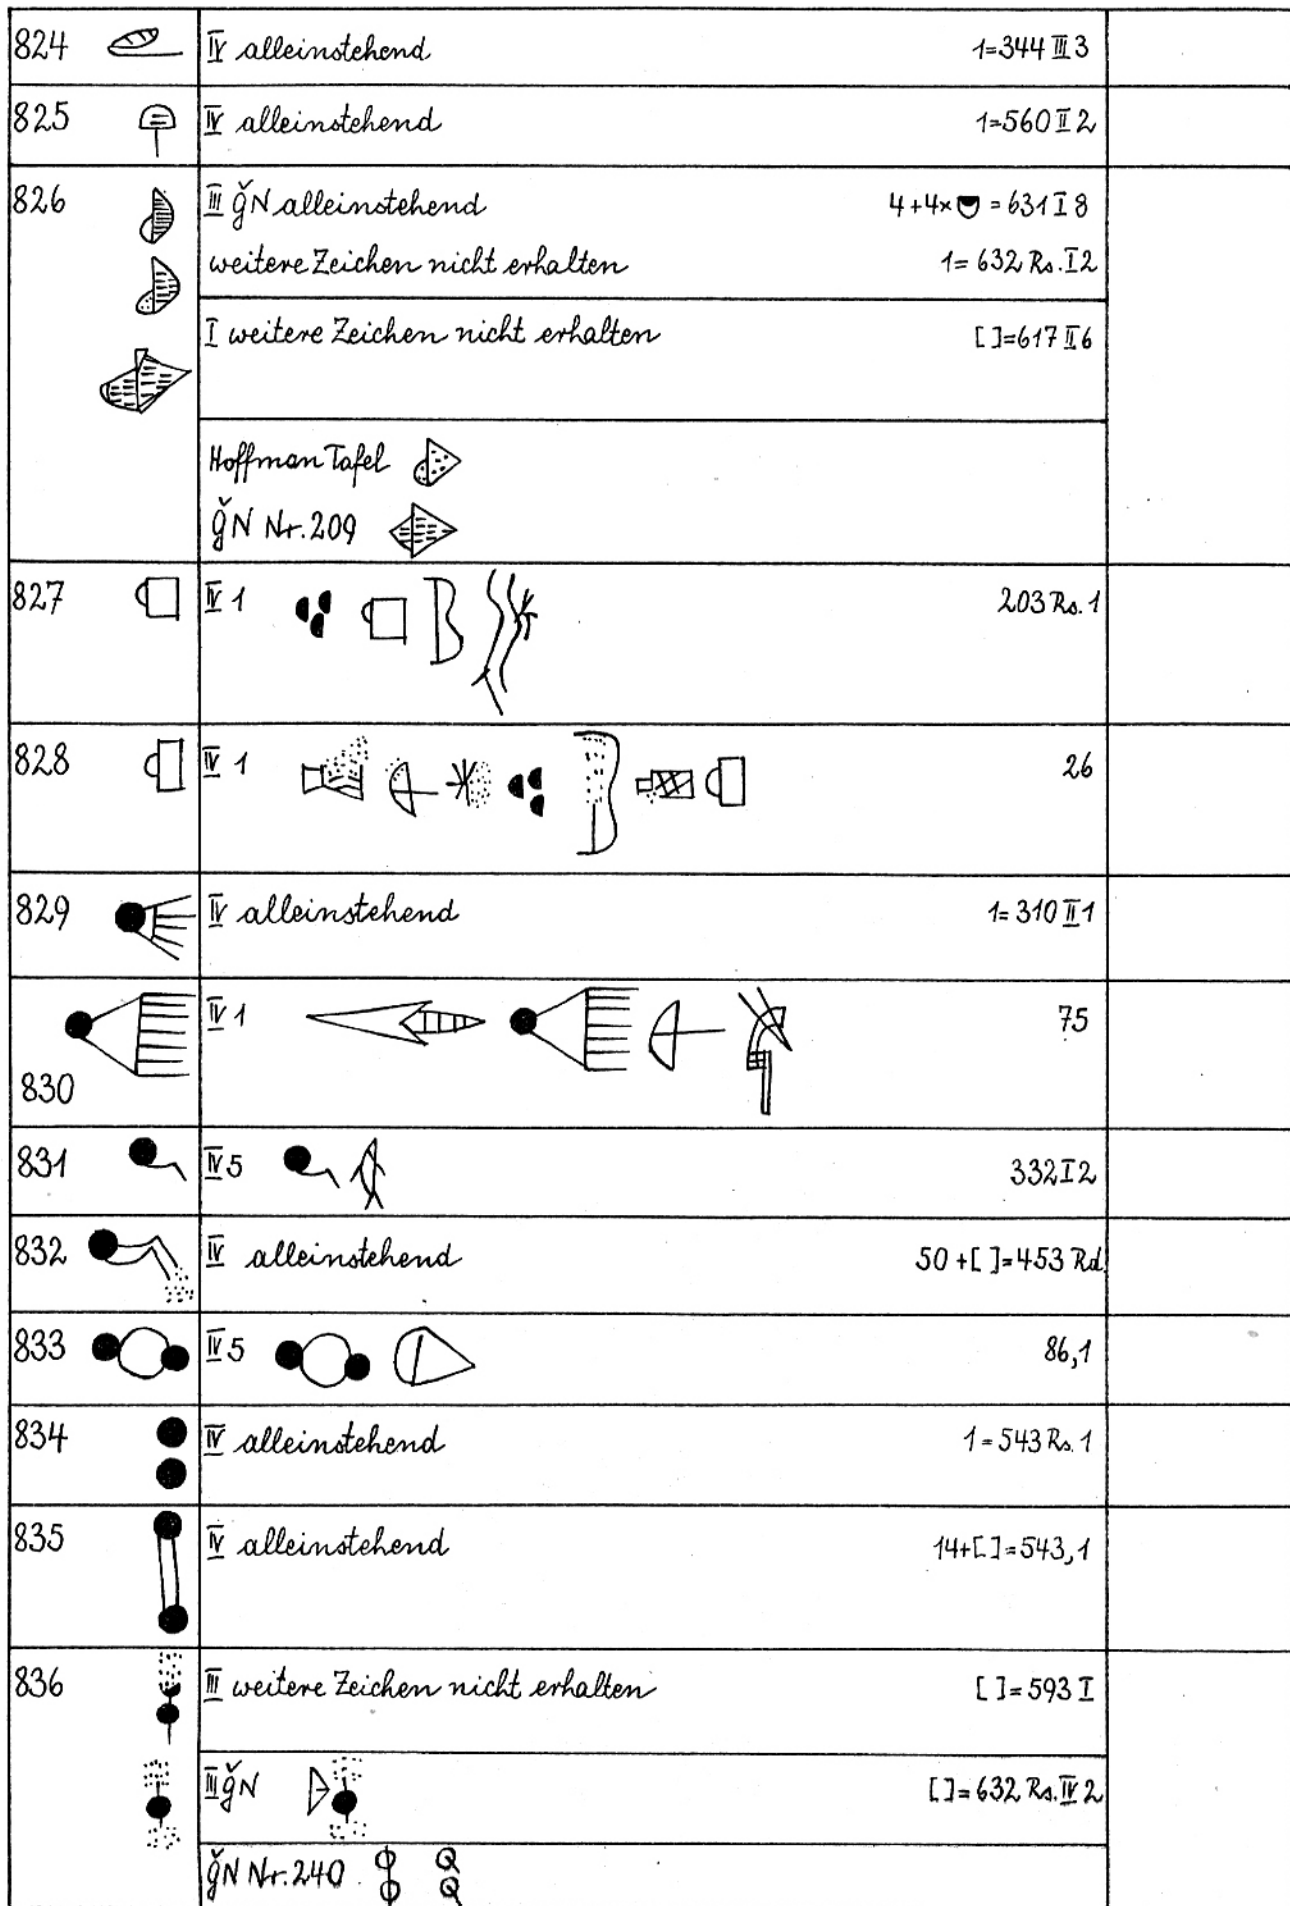 824 IV alleinstehend 1=344 III 3
825 IV alleinstehend 1=560 II 2
826 III ǧN alleinstehend 4+4× = 631 I 8
weitere Zeichen nicht erhalten 1= 632 Rs. I 2
I weitere Zeichen nicht erhalten [ ]=617 II 6
Hoffman Tafel
ǧN Nr. 209
827 IV 1 203 Rs. 1
828 IV 1 26
829 IV alleinstehend 1=310 II 1
830 IV 1 75
831 IV 5 332 I 2
832 IV alleinstehend 50+[ ]=453 Rd.
833 IV 5 86,1
834 IV alleinstehend 1=543 Rs. 1
835 IV alleinstehend 14+[ ]=543,1
836 III weitere Zeichen nicht erhalten [ ]=593 I
III ǧN [ ]=632 Rs. IV 2
ǧN Nr. 240